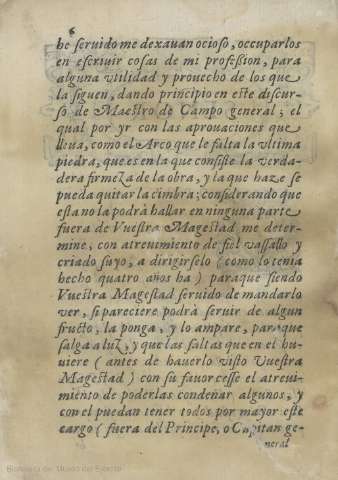 6
he seruido me dexauan ocioso, occuparlos
en escriuir cosas de mi profession, para
alguna vtilidad y prouecho de los que
la siguen, dando principio en este discur-
so de Maestro de Campo general; el
qual por yr con las aprouaciones que
lleua, como el Arco que le falta la vltima
piedra, que es en la que consiste la verda-
dera firmeza de la obra, y la que haze se
pueda quitar la cimbra; considerando que
esta no la podrà hallar en ninguna parte
fuera de Vuestra Magestad me deter-
mine, con atreuimiento de fiel vassallo y
criado suyo, a dirigirselo (como lo tenia
hecho quatro años ha) paraque siendo
Vuestra Magestad seruido de mandarlo
ver, si pareciere podrà seruir de algun
fructo, la ponga, y lo ampare, paraque
salga a luz, y que las faltas que en el hu-
uiere (antes de hauerlo visto Vuestra
Magestad) con su fauor cesse el atreui-
miento de poderlas condeñar algunos, y
con el puedan tener todos por mayor este
cargo (fuera del Principe, o Capitan ge-
neral
Biblioteca del Museo del Ejército